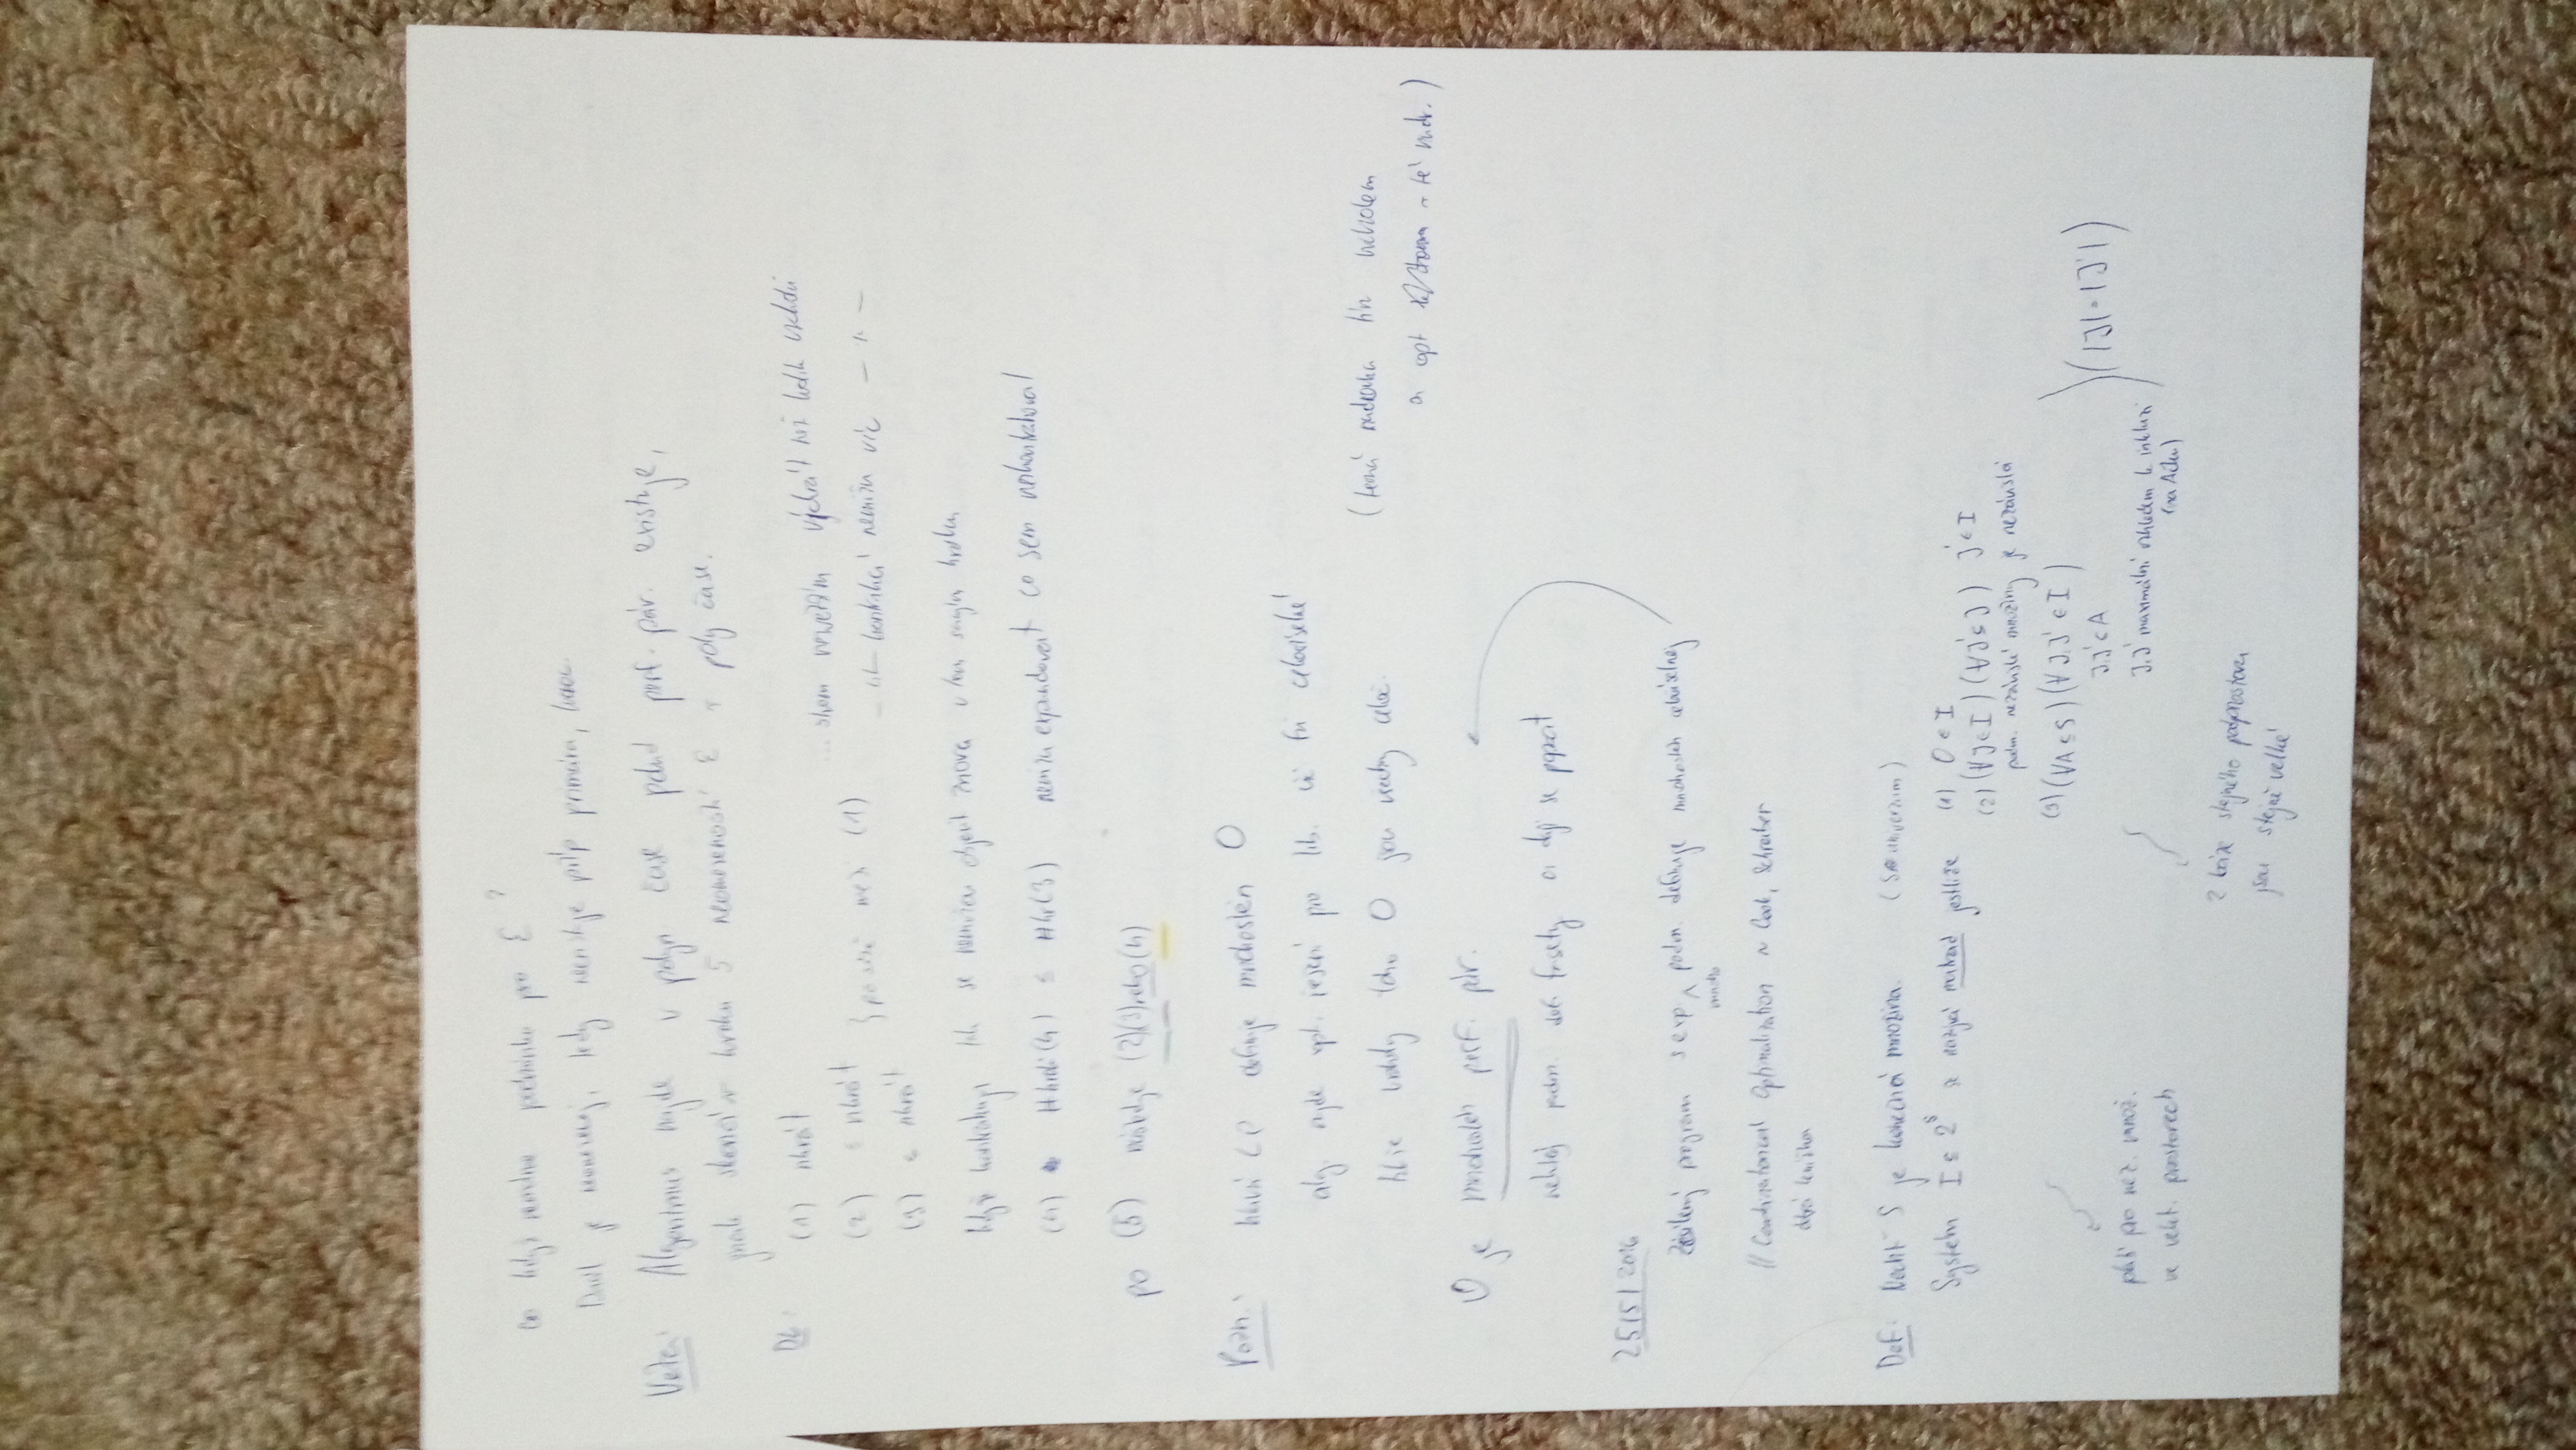 co když nemáme podmínku pro ε?
Duál je neomezený, tedy neexistuje příp primáru,
Věta: Algoritmus najde v polyn čase pokud perf. pár. existuje,
jinak skončí v kroku 5 neomezeností ε v poly čase.
Dk: (1) nkrát
(2) ≤ nkrát } mezi (1) ... nevětším než kolik vrcholů
(3) ≤ nkrát kontrakcí nemůžu víc — " —
když kontrahuji tak se nemůžou objevit znova v tom samým kroku
(4) #kroků(4) ≤ #kr(3) nemůžu expandovat co sem neskontrahoval
po (5) následuje (2)(3)nebo(4)
Pozn.: hlavní LP definuje mnohostěn O
alg. najde opt. řešení pro lib. úč fci celočíselné
tkže vrcholy toho O jsou všechny celoč.
(
a opt té nadr.)
O je mnohostěn perf. pár.
podm. def. fasety a dají se popsat
25/5/2016
Zesílený program s exp. mnoho podm. definuje mnohostěn celočíselnej
// Combinatorical Optimalization ~ Cook, Schreiber
dobrá knížka
Def: Nechť S je konečná množina. (S univerzum)
Systém I ⊆ 2^S se nazývá matroid jestliže (1) 0 ∈ I
(2) (∀J∈I) (∀J'⊆J) J'∈I
podm. nezávislé množiny je nezávislá
(3) (∀A⊆S) (∀J,J' ∈ I)
J,J'⊂A
J,J' maximální vzhledem k inkluzi ) (|J|=|J'|)
(na Ačku)
platí pro nez. množ.
ve vekt. prostorech
2 báze stejného podprostoru
jsou stejně velké